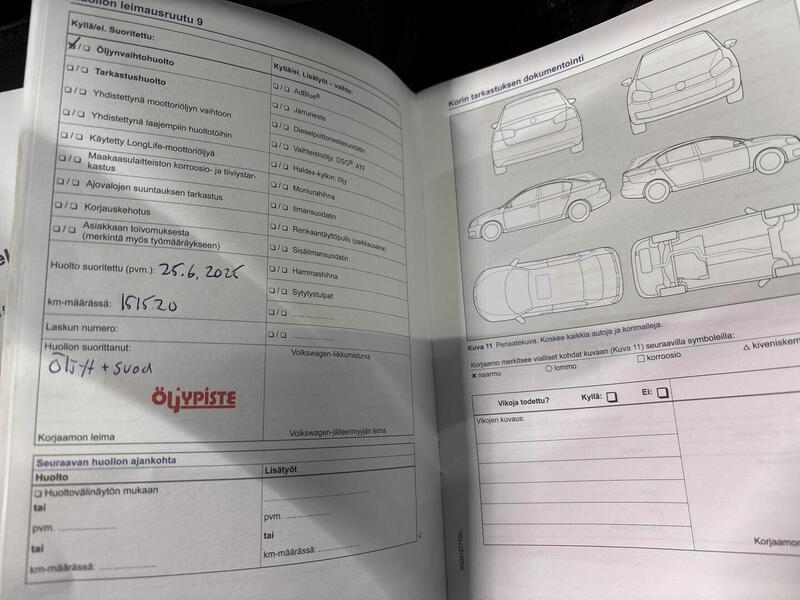 leimausruutu 9
Kyllä/ei. Suoritettu:
❏ / ❏ Öljynvaihtohuolto
❏ / ❏ Tarkastushuolto
❏ / ❏ Yhdistettynä moottoriöljyn vaihtoon
❏ / ❏ Yhdistettynä laajempiin huoltotöihin
❏ / ❏ Käytetty LongLife-moottoriöljyä
❏ / ❏ Maakaasulaitteiston korroosio- ja tiiviystar-
kastus
❏ / ❏ Ajovalojen suuntauksen tarkastus
❏ / ❏ Korjauskehotus
❏ / ❏ Asiakkaan toivomuksesta
(merkintä myös työmääräykseen)
Huolto suoritettu (pvm.): 25.6.2025
km-määrässä: 151520
Laskun numero:
Huollon suorittanut:
Öljyt + suod
ÖLJYPISTE
Korjaamon leima
Kyllä/ei. Lisätyöt – vaihto:
❏ / ❏ AdBlue®
❏ / ❏ Jarruneste
❏ / ❏ Dieselpolttonestesuodatin
❏ / ❏ Vaihteistoöljy: DSG®, ATF
❏ / ❏ Haldex-kytkin: öljy
❏ / ❏ Moniurahihna
❏ / ❏ Ilmansuodatin
❏ / ❏ Renkaantäyttöpullo (paikkausaine)
❏ / ❏ Sisäilmansuodatin
❏ / ❏ Hammashihna
❏ / ❏ Sytytystulpat
❏ / ❏ ....................
❏ / ❏ ....................
Volkswagen-liikkumisturva:
Volkswagen-jälleenmyyjän leima
Seuraavan huollon ajankohta
Huolto
❏ Huoltovälinäytön mukaan
tai
pvm. ....................
tai
km-määrässä: ....................
Lisätyöt
....................
pvm. ....................
tai
km-määrässä: ....................
Korin tarkastuksen dokumentointi
Kuva 11 Periaatekuva. Koskee kaikkia autoja ja korimalleja.
Korjaamo merkitsee vialliset kohdat kuvaan (Kuva 11) seuraavilla symboleilla:
× naarmu ○ lommo □ korroosio △ kiveniskem
Vikoja todettu? Kyllä: ❏ Ei: ❏
Vikojen kuvaus:
Korjaamon